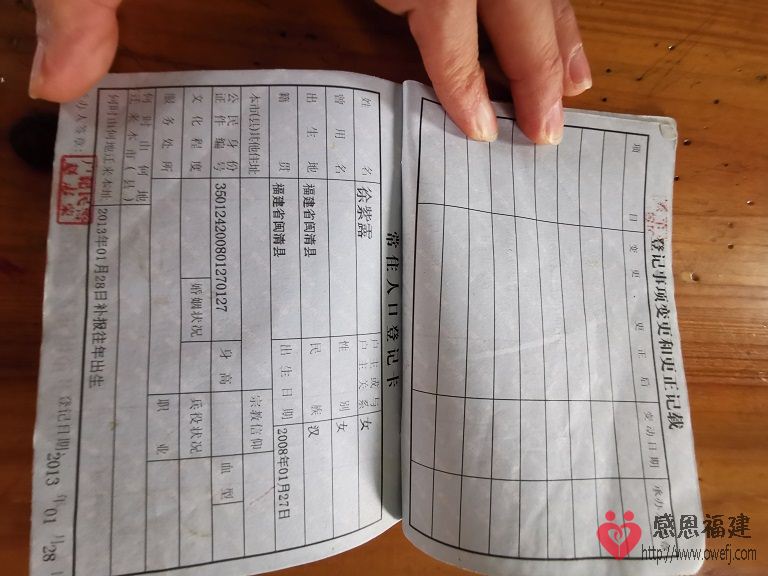 登记事项变更和更正记载
项 目 变更、更正后 变动日期 承办
常住人口登记卡
姓 名 徐紫露 户主或与户主关系 女
曾用名 性 别 女
出生地 福建省闽清县 民 族 汉
籍 贯 福建省闽清县 出生日期 2008年01月27日
本市(县)其他住址 宗教信仰
公民身份证件编号 350124200801270127 身 高 血 型
文化程度 婚姻状况 兵役状况
服务处所 职 业
何时由何地迁来本市(县)
何时由何地迁来本址 2013年01月28日补报往年出生
办人签章: 登记日期: 2013 年 01 月 28
感恩福建
http://www.owefj.com